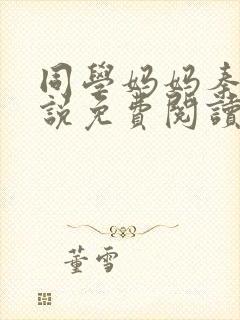 同學妈妈秦
說免費閱讀
董雪